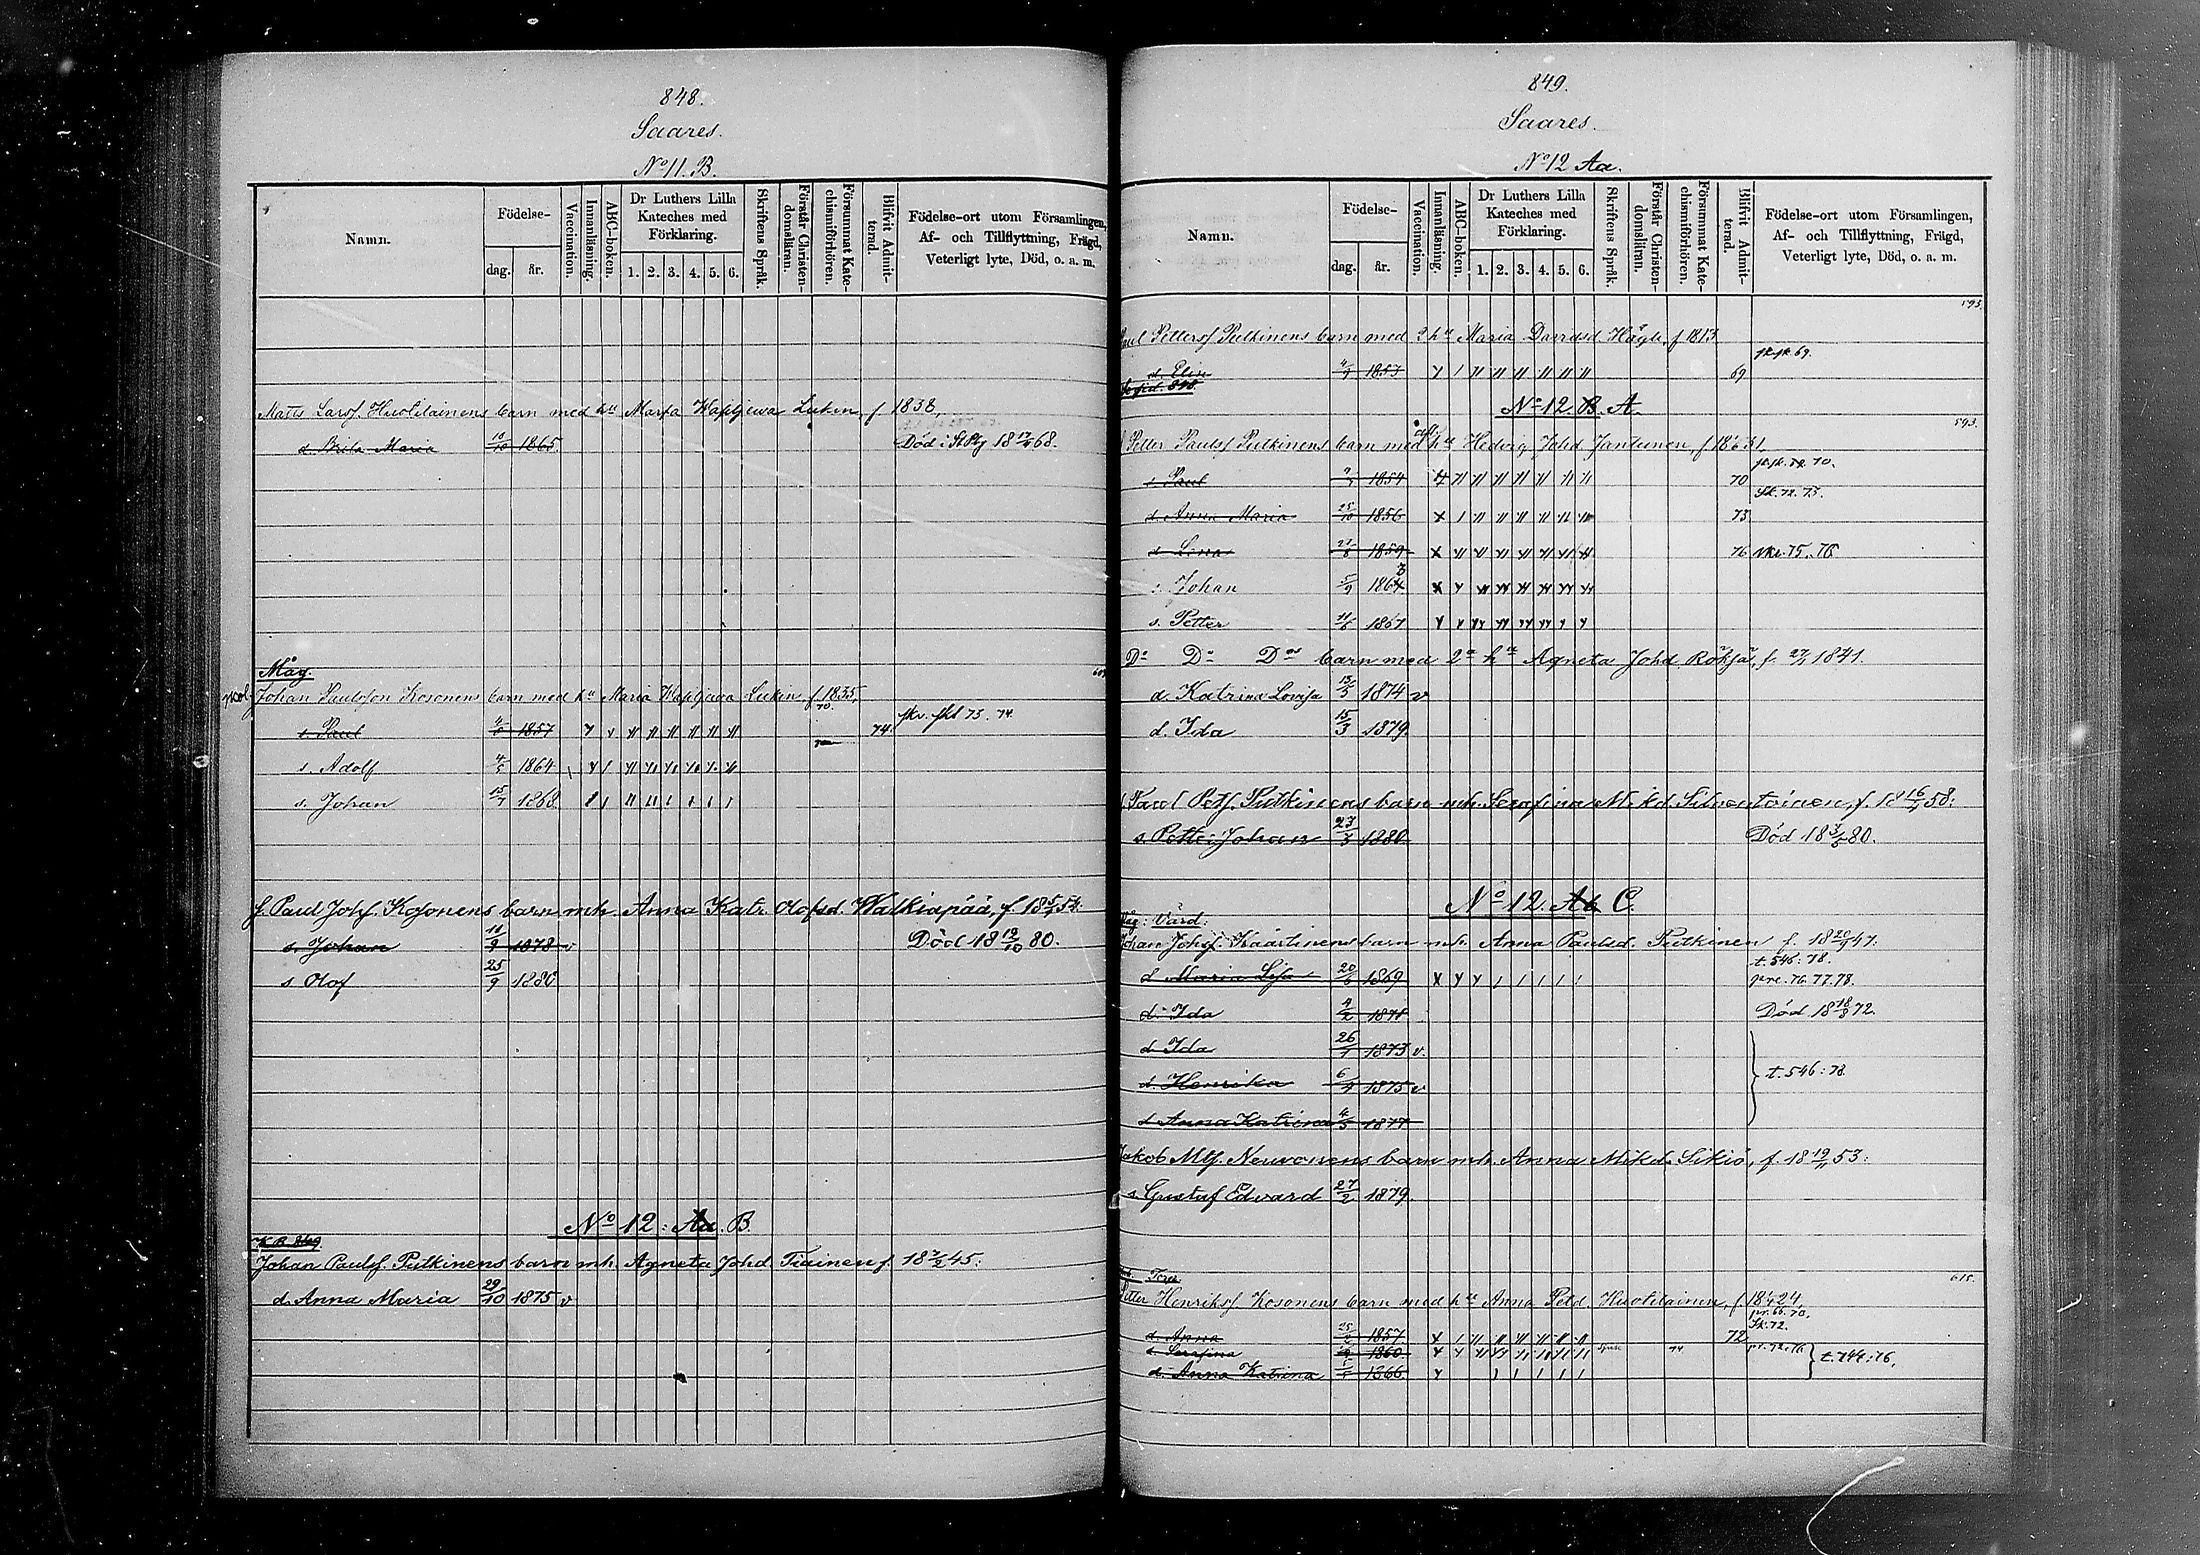 848.
Saares.
No 11. B.
Namn.
Födelse-
dag. år.
Vaccination.
Innanläsning.
ABC-boken.
Dr Luthers Lilla Kateches med Förklaring.
1. 2. 3. 4. 5. 6.
Skriftens Språk.
Förstår Christendomsläran.
Försummat Katechismiförhören.
Blifvit Admitterad.
Födelse-ort utom Församlingen, Af- och Tillflyttning, Frägd, Veterligt lyte, Död, o. a. m.
Matts Larsf. Huolilainens barn med hu Maria Wasiljewa Lukin, f 1838,
d. Brita Maria 10/10 1865. Död i St Pbg 18 17/4 68.
Måg.
Johan Paulsson Kosonens barn med hu Maria Wasiljewa Lukin, f 1835,
s. Paul 4/6 1857 74. skr. skt 73. 74.
s. Adolf 4/5 1864
s. Johan 15/7 1868
f. Paul Johsf. Kosonens barn mh. Anna Katr. Olofsd. Walkiapää, f. 18 5/4 54:
s. Johan 10/9 1878 v Död 18 12/10 80.
s Olof 25/9 1880
No 12: Aa. B.
K B. 869
Johan Paulsf. Putkinens barn mh. Agneta Johd. Tiainen f. 18 7/2 45:
d. Anna Maria 29/10 1875 v
849.
Saares.
No 12 Aa.
Namn.
Födelse-
dag. år.
Vaccination.
Innanläsning.
ABC-boken.
Dr Luthers Lilla Kateches med Förklaring.
1. 2. 3. 4. 5. 6.
Skriftens Språk.
Förstår Christendomsläran.
Försummat Katechismiförhören.
Blifvit Admitterad.
Födelse-ort utom Församlingen, Af- och Tillflyttning, Frägd, Veterligt lyte, Död, o. a. m.
593.
Paul Pettersf Putkinens barn med 2 hu Maria Davidsd Hägli, f 1813
d. Elin 4/7 1853 69 sk. sk 69.
No 12. B. A.
593.
Petter Paulsf Putkinens barn med hu Hedvig Johd Jantunen, f 18 31,
s. Paul 7/7 1854 70 70.
d. Anna Maria 25/10 1856 73 Sk. 72. 73.
d Lena 27/8 1859 76 Nkr. 75. 76
s. Johan 5/9 1864 3
s. Petter 11/6 1867
Do Do Dos barn med 2a hu Agneta Johd Rökjä, f. 27/11 1841.
d. Katrina Lovisa 13/5 1874 v
d. Ida 15/3 1879.
Paul Petf. Putkinens barn mh. Serafina Mikd. Silventoinen, f. 18 16/4 58:
s. Petter Johan 23/3 1880 Död 18 3/5 80.
No 12. Ab C.
Måg: Värd:
Johan Johsf. Kaartinens barn mh. Anna Paulsd. Putkinen f. 18 20/9 47.
t. 546: 78.
d Maria Lisa 20/6 1869 76. 77. 78.
d. Ida 4/2 1871 Död 18 18/3 72.
d Ida 26/1 1873 v.
d. Henrika 6/4 1875 v t. 546: 78.
d Anna Katrina 4/3 1877
Jakob Mtf. Neuvonens barn mh. Anna Mikd. Sikiö, f. 18 12/11 53:
s. Gustaf Edvard 27/2 1879.
Torp 615.
Petter Henriksf. Kosonens barn med hu Anna Petd. Huolilainen, f. 18 24,
66. 70.
Sk. 72.
d. Anna 25/2 1857. 72
d. Serafina 1860 74
d. Anna Katrina 5/5 1866. t. 744: 76,